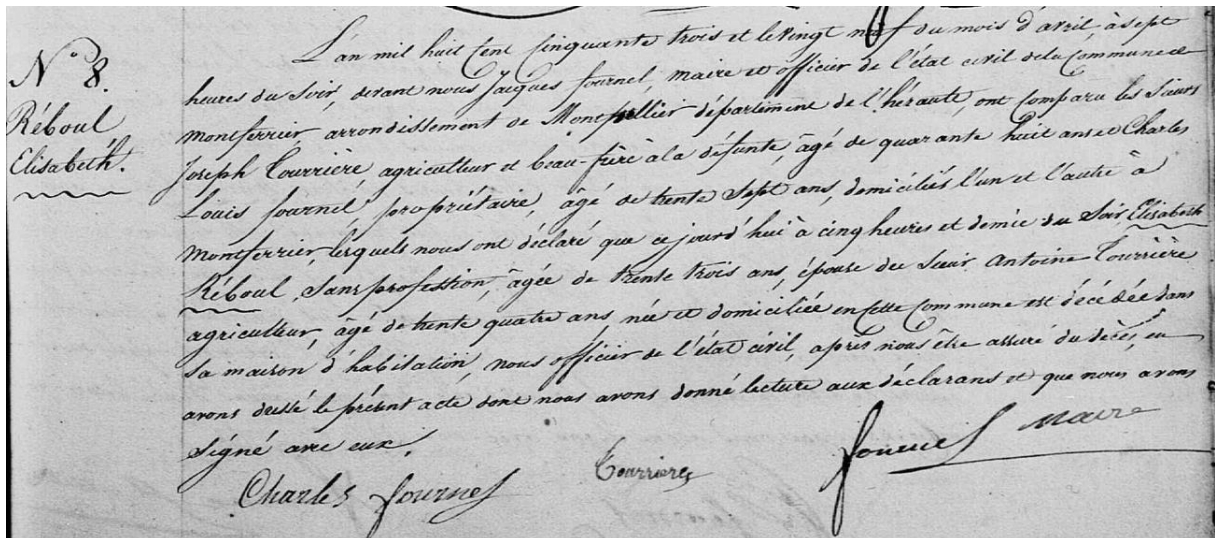 N° 8.
Réboul
Elisabeth.
L'an mil huit Cent Cinquante trois et le vingt neuf du mois d'avril, à sept
heures du Soir, devant nous Jaques fournel, maire et officier de l'état civil de la Commune de
montferrier, arrondissement de Montpellier département de l'hérault, ont Comparu les Sieurs
Joseph Courrière, agriculteur et beau-frère à la défunte, âgé de quarante huit ans et Charles
Louis fournel, propriétaire, âgé de trente Sept ans, domiciliés l'un et l'autre à
montferrier, lesquels nous ont déclaré que ce jourd'hui à cinq heures et demie du Soir, Elisabeth
Réboul, Sans profession, âgée de trente trois ans, épouse du Sieur Antoine Courrière
agriculteur, âgé de trente quatre ans, née et domiciliée en Cette Commune est décédée dans
Sa maison d'habitation, nous officier de l'état civil, après nous être assuré du décès, en
avons dressé le présent acte dont nous avons donné lecture aux déclarans et que nous avons
Signé avec eux.
Charles fournel
Courrière
fournel Maire